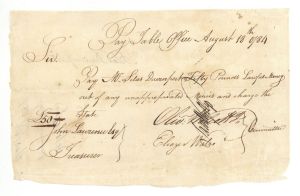 Pay Table Office August 18th 1784
Sir
Pay Mr Silas Davenport Fifty Pounds Lawful Money
out of any unappropriated Monies and charge the
State
£50
John Lawrence Esq
Treasurer
Eliz Wales
Committee